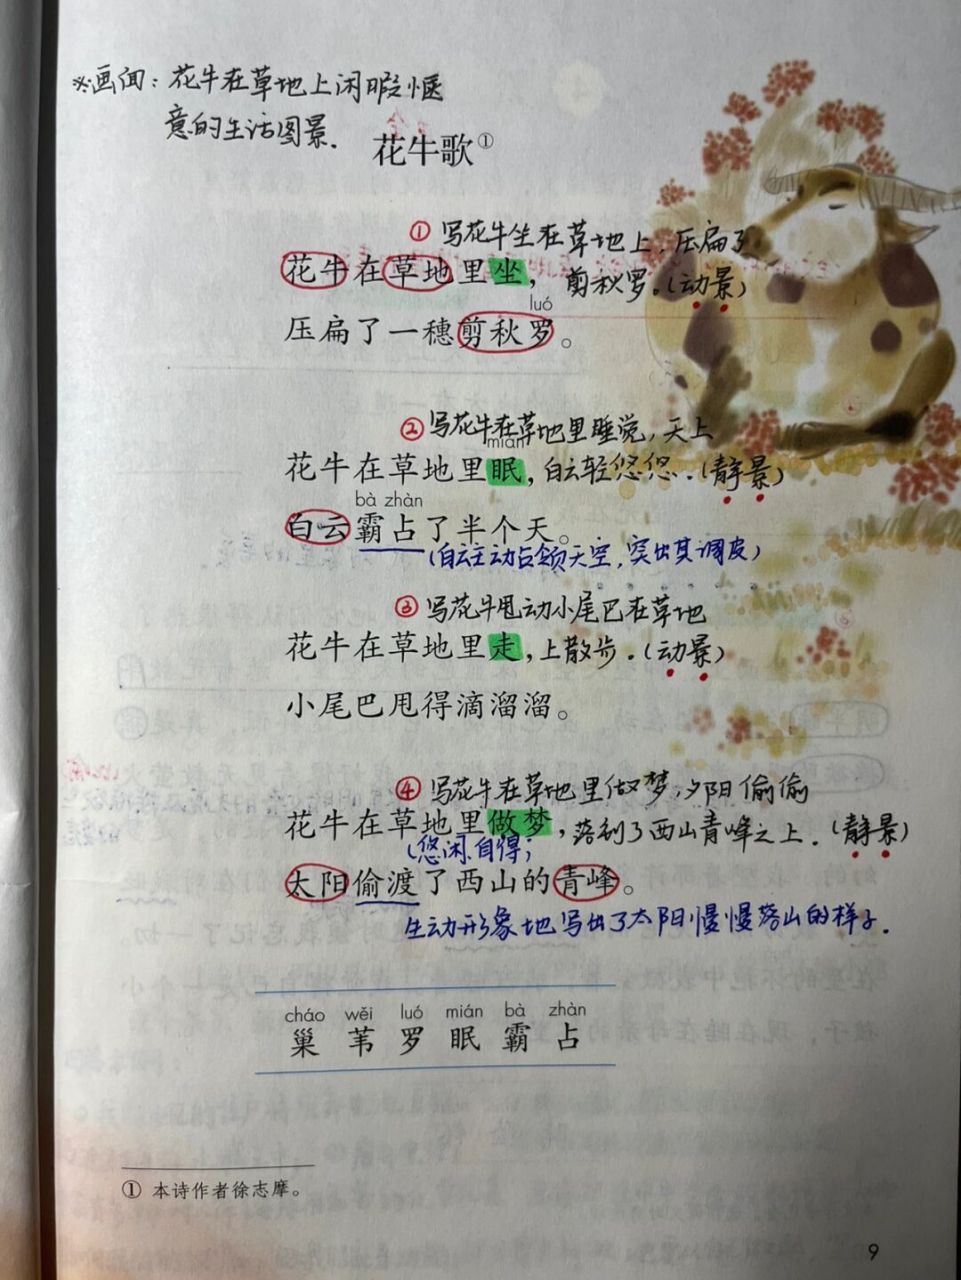 ※画面：花牛在草地上闲暇惬
意的生活图景.
花牛歌①
① 写花牛坐在草地上，压扁了
花牛在草地里坐， 剪秋罗。(动景)
luó
压扁了一穗剪秋罗。
② 写花牛在草地里睡觉，天上
mián
花牛在草地里眠， 白云轻悠悠.（静景）
bà zhàn
白云霸占了半个天。
(白云主动占领天空，突出其调皮)
③ 写花牛甩动小尾巴在草地
花牛在草地里走， 上散步.（动景）
小尾巴甩得滴溜溜。
④ 写花牛在草地里做梦，夕阳偷偷
花牛在草地里做梦， 落到了西山青峰之上.（静景）
(悠闲自得;
太阳偷渡了西山的青峰。
生动形象地写出了太阳慢慢落山的样子.
cháo wěi luó mián bà zhàn
巢 苇 罗 眠 霸 占
① 本诗作者徐志摩。
9